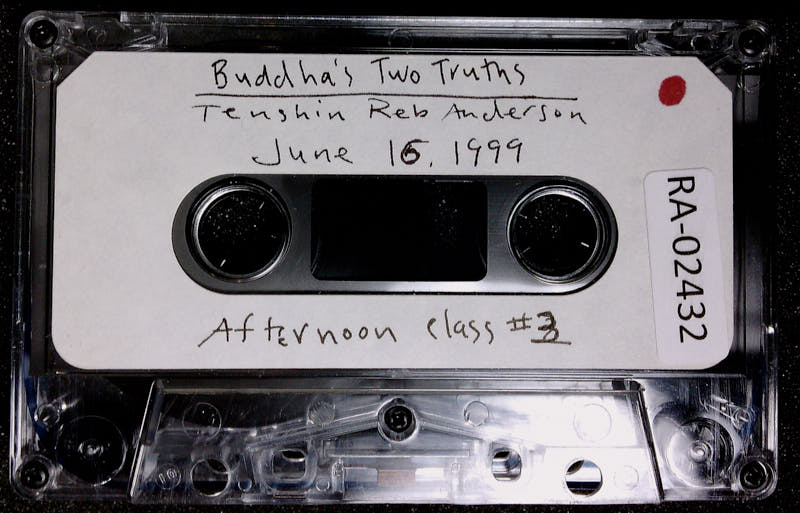 Buddha's Two Truths
Tenshin Reb Anderson
June 16, 1999
Afternoon class #3
RA-02432